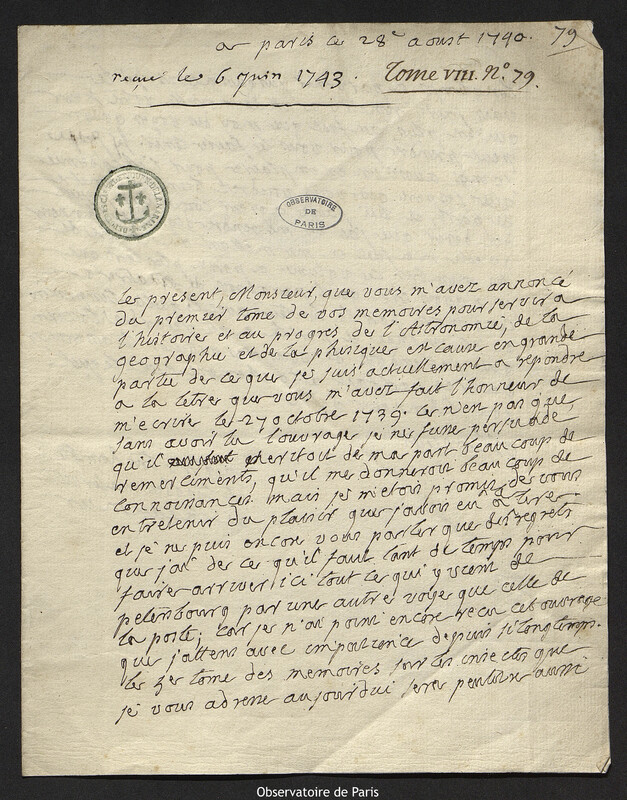 a paris ce 28e aoust 1740.
79
reçue le 6 Juin 1743. Tome VIII. No. 79.
OBSERVATOIRE
DE
PARIS
Le present, Monsieur, que vous m'avez annoncé
du premier tome de vos memoires pour servir a
l'histoire et au progres de l'Astronomie, de la
geographie et de la phisique est cause en grande
partie de ce que je suis actuellement a repondre
a la letre que vous m'avez fait l'honneur de
m'ecrire le 27 octobre 1739. ce n'est pas que,
sans avoir lu l'ouvrage je ne fusse persuadé
qu'il meritoit de ma part beaucoup de
remerciments, qu'il me donneroit beaucoup de
connoissances mais je m'etois promis de vous
entretenir du plaisir que j'avois eu a le lire
et je ne puis encore vous parler que des regrets
que j'ai de ce qu'il faut tant de temps pour
faire arriver ici tout ce qui y vient de
petersbourg par une autre voye que celle de
la poste; car je n'ai point encore recu cet ouvrage
que j'attens avec impatience depuis si longtemps.
le 5e tome des memoires sur les insectes que
je vous adresse aujourdui sera peutetre aussi
Observatoire de Paris